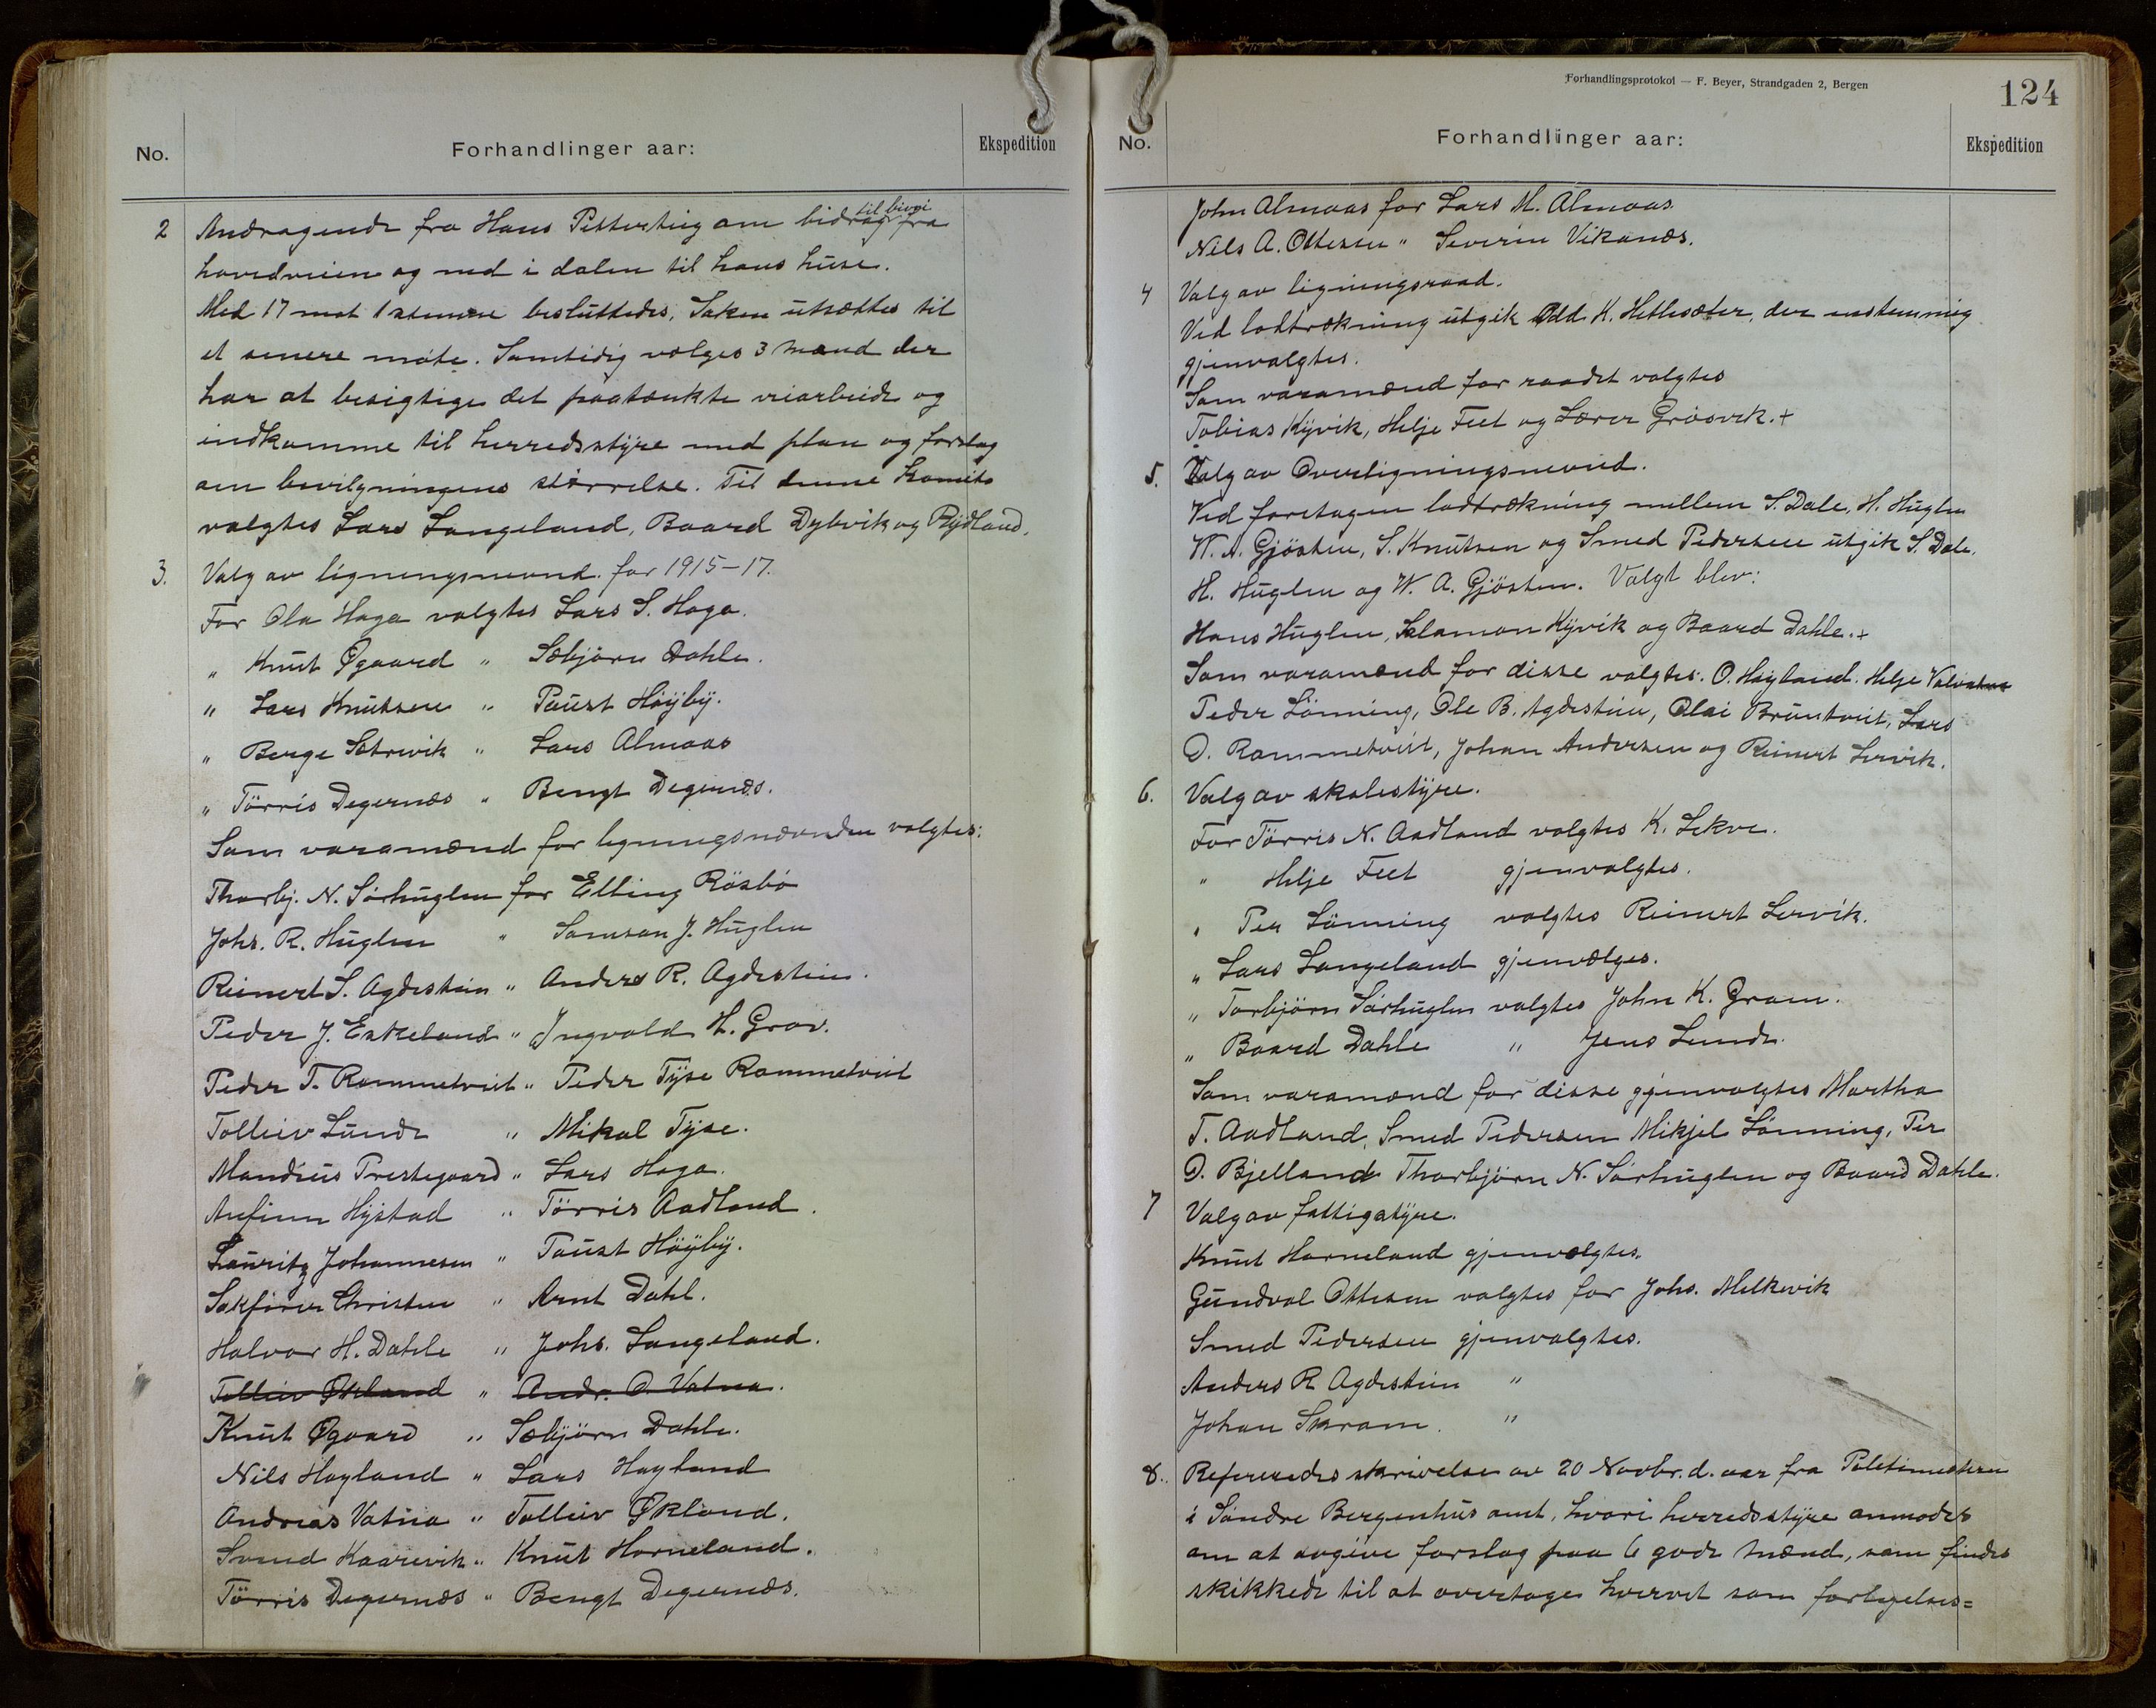 No.
Forhandlinger aar:
Ekspedition
2 Andragende fra Hans Pettersteig om bidrag til bivei fra
hovedveien og ned i dalen til hans huse.
Med 17 mot 1 stemme besluttedes, Saken utsættes til
et senere møte. Samtidig vælges 3 mænd der
har at besigtige det paatænkte veiarbeide og
indkomme til herredsstyre med plan og forslag
om bevilgningens størrelse. Til denne komite
valgtes Lars Langeland, Baard Dybvik og Rydland.
3. Valg av ligningsnevnd for 1915-17.
For Ola Haga valgtes Lars S. Haga.
" Knut Øgaard " Sæbjörn Dahle.
" Lars Knutsen " Paust Höÿbÿ.
" Berge Sætrevik " Lars Almaas
" Törris Degernæs " Bengt Degernæs.
Som varamænd for ligningsnævnden valgtes:
Thorbj. N. Sörhuglen for Elling Rösbö
Johs. R. Huglen " Samson J. Huglen
Reinert S. Agdestein " Anders R. Agdestein.
Peder J. Eskeland " Ingvald H. Grov.
Peder T. Rommetveit " Peder Tÿse Rommetveit
Tolleiv Lunde " Mikal Tÿse.
Mandius Prestegaard " Lars Haga.
Anfinn Hÿstad " Törris Aadland.
Lauritz Johannesen " Paust Höÿbÿ.
Sakförer Christen " Arnt Dahl.
Halvor H. Dahle " Johs. Langeland.
Tolleiv Økland " Andr. O. Vatna.
Knut Øgaard " Sæbjörn Dahle.
Nils Hayland " Lars Hayland
Andreas Vatna " Tolleiv Økland.
Svend Kaarevik " Knut Horneland.
Törris Degernæs " Bengt Degernæs.
Forhandlingsprotokol — F. Beyer, Strandgaden 2, Bergen
124
No.
Forhandlinger aar:
Ekspedition
John Almaas for Lars M. Almaas.
Nils A. Ottesen " Severin Vikanæs.
4 Valg av ligningsraad.
Ved lodtrækning utgik Odd K. Hetlesæter, der enstemmig
gjenvalgtes.
Som varamænd for raadet valgtes
Tobias Kÿvik, Helje Feet og Lærer Grösvik. +
5. Valg av Overligningsnevnd.
Ved foretagen lodtrækning mellem S. Dale, H. Huglen
W. A. Gjösten, S. Knutsen og Smed Pedersen utgik S. Dale,
H. Huglen og W. A. Gjösten. Valgt blev:
Hans Huglen, Salamon Kÿvik og Baard Dahle. +
Som varamænd for disse valgtes: O. Hayland. Helje Valvatne
Peder Lönning, Ole B. Agdestein, Olai Bruntveit, Lars
O. Rommetveit, Johan Andersen og Reinert Lervik.
6. Valg av skolestÿre.
For Törris N. Aadland valgtes K. Lekve.
" Helje Feet gjenvalgtes.
" Per Lönning valgtes Reinert Lervik.
" Lars Langeland gjenvælges.
" Torbjörn Sörhuglen valgtes John K. Gram.
" Baard Dahle " Jens Lunde.
Som varamænd for disse gjenvalgtes Martha
T. Aadland, Smed Pedersen Mikjel Lönning, Per
O. Bjelland Thorbjörn N. Sörhuglen og Baard Dahle.
7 Valg av fattigstÿre.
Knut Horneland gjenvælgtes.
Gundval Ottesen valgtes for Johs. Melkevik
Smed Pedersen gjenvalgtes.
Anders R Agdestein "
Johan Skram. "
8. Refereredes skrivelse av 20 Novbr. d. aar fra Politimesteren
i Söndre Bergenhus amt, hvori herredsstÿre anmodes
om at avgive forslag paa 6 gode mænd, som findes
skikkede til at overtage hvervet som forligelses=